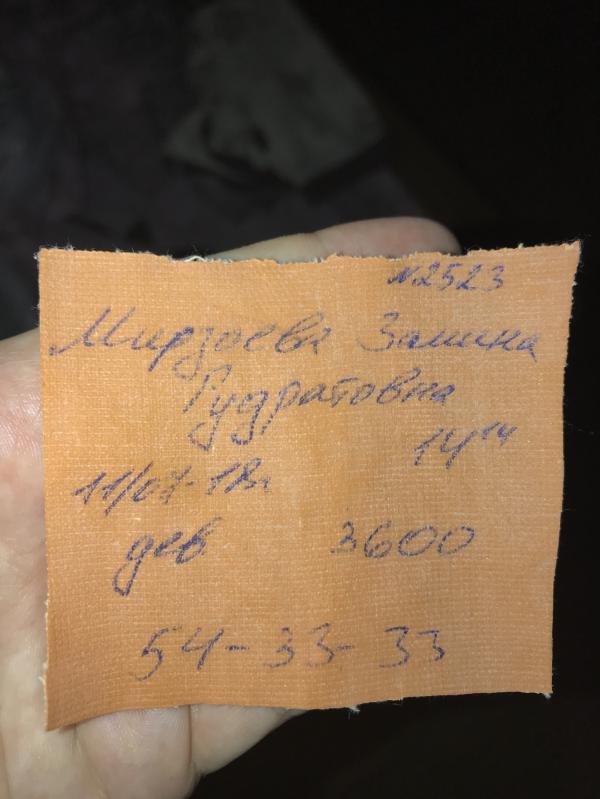 №2523
Мирзоева Замина
Рудратовна
14¹⁴
11/07-18г
дев 3600
54-33-33